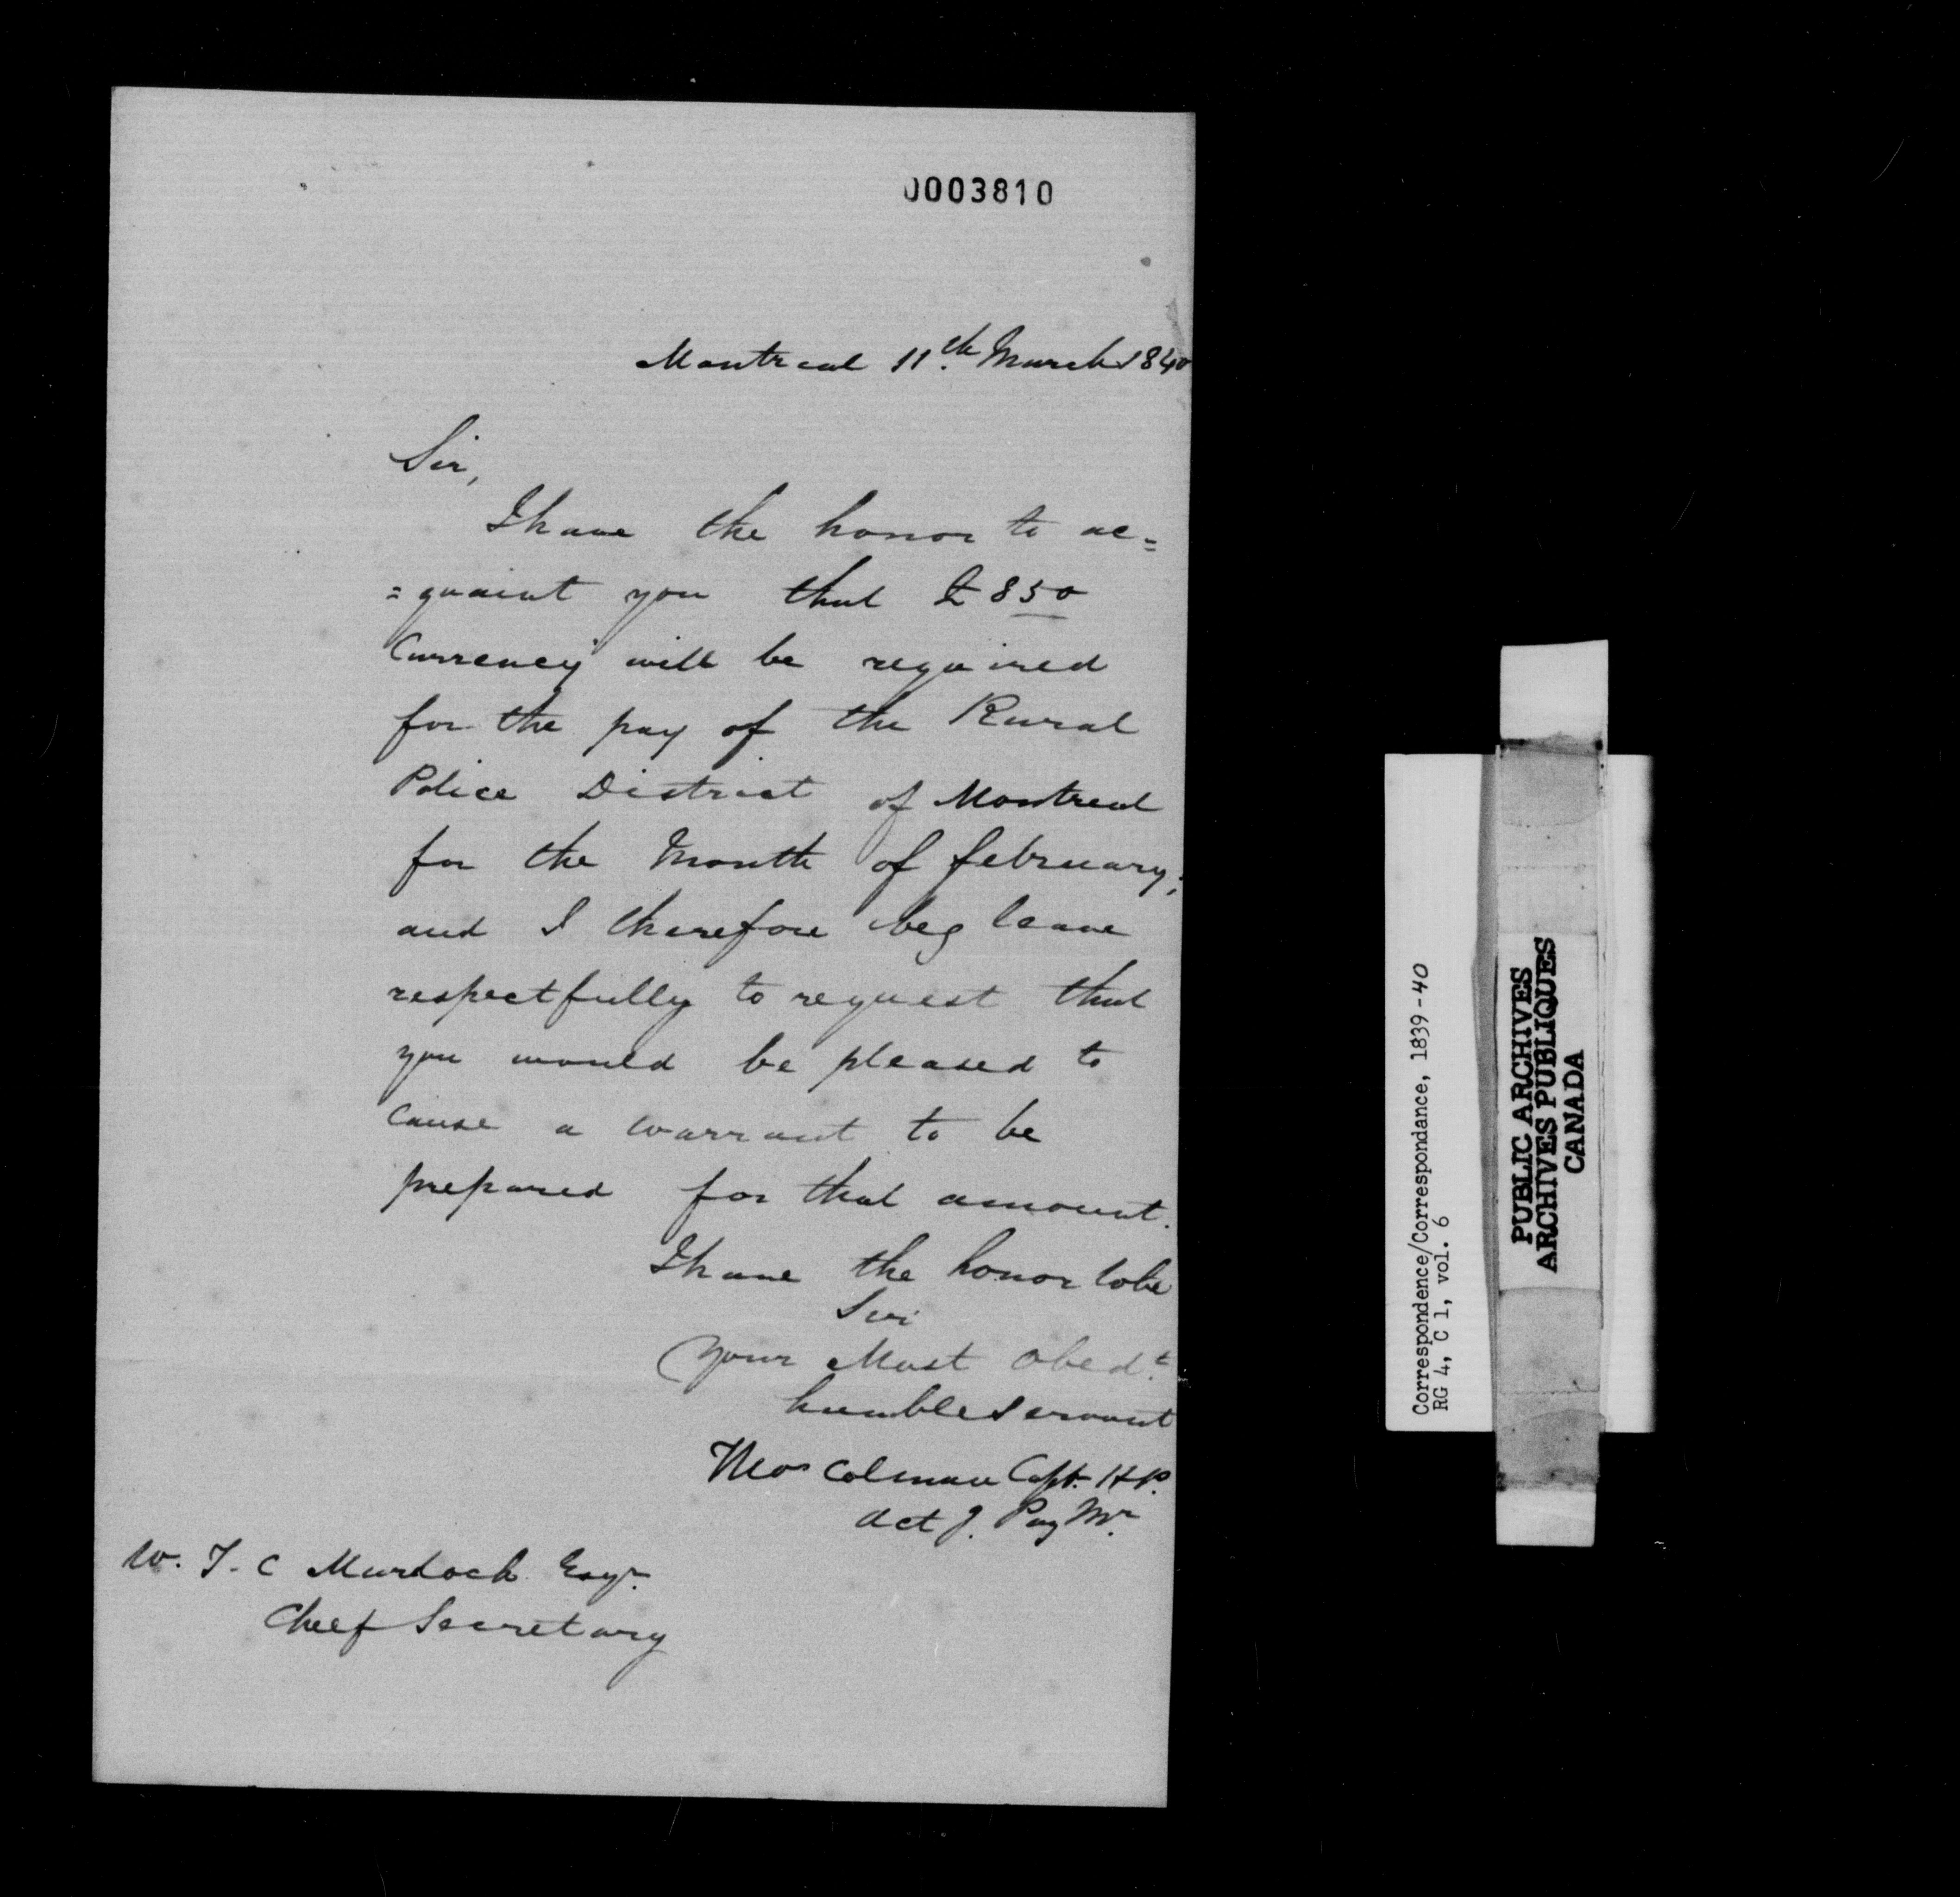 0003810
Montreal 11th March 1840
Sir,
I have the honor to ac=
=quaint you that £850
Currency will be required
for the pay of the Rural
Police District of Montreal
for the Month of february;
and I therefore beg leave
respectfully to request that
you would be pleased to
cause a warrant to be
prepared for that amount.
I have the honor to be
Sir
Your Most Obedt.
humble Servant
Thos Colman Capt. H.P.
Act g. Pay Mr.
W. T. C Murdoch Esqr.
Cheef Secretary
Correspondence/Correspondance, 1839-40
RG 4, C 1, vol. 6
PUBLIC ARCHIVES
ARCHIVES PUBLIQUES
CANADA